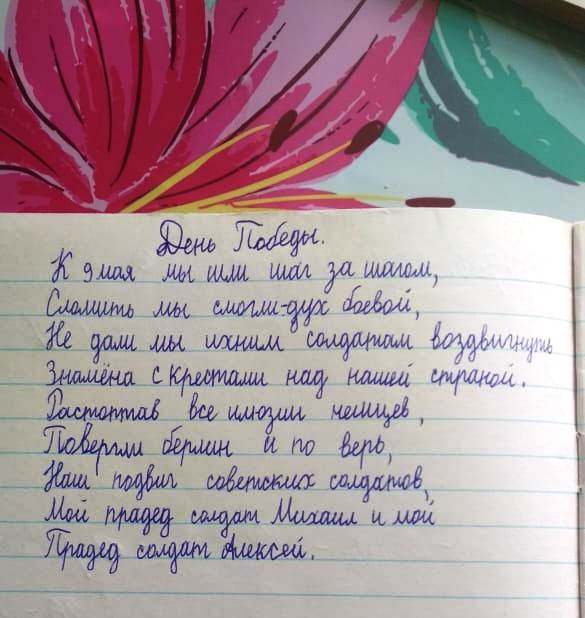 День Победы.
К 9 мая мы шли шаг за шагом,
Сломить мы смогли-дух боевой,
Не дали мы ихним солдатам воздвигнуть
Знамёна с крестами над нашей страной.
Растоптав все илюзии немцев,
Повергли берлин и по верь,
Наш подвиг советских солдатов,
Мой прадед солдат Михаил и мой
Прадед солдат Алексей.